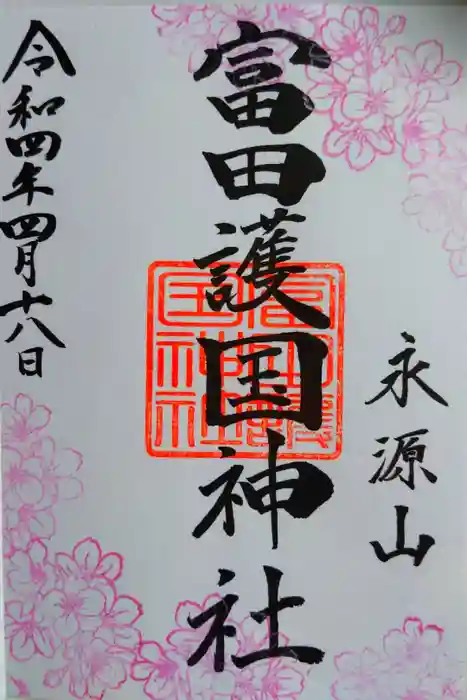 永源山
富田護国神社
富田護
国神社
令和四年四月十八日